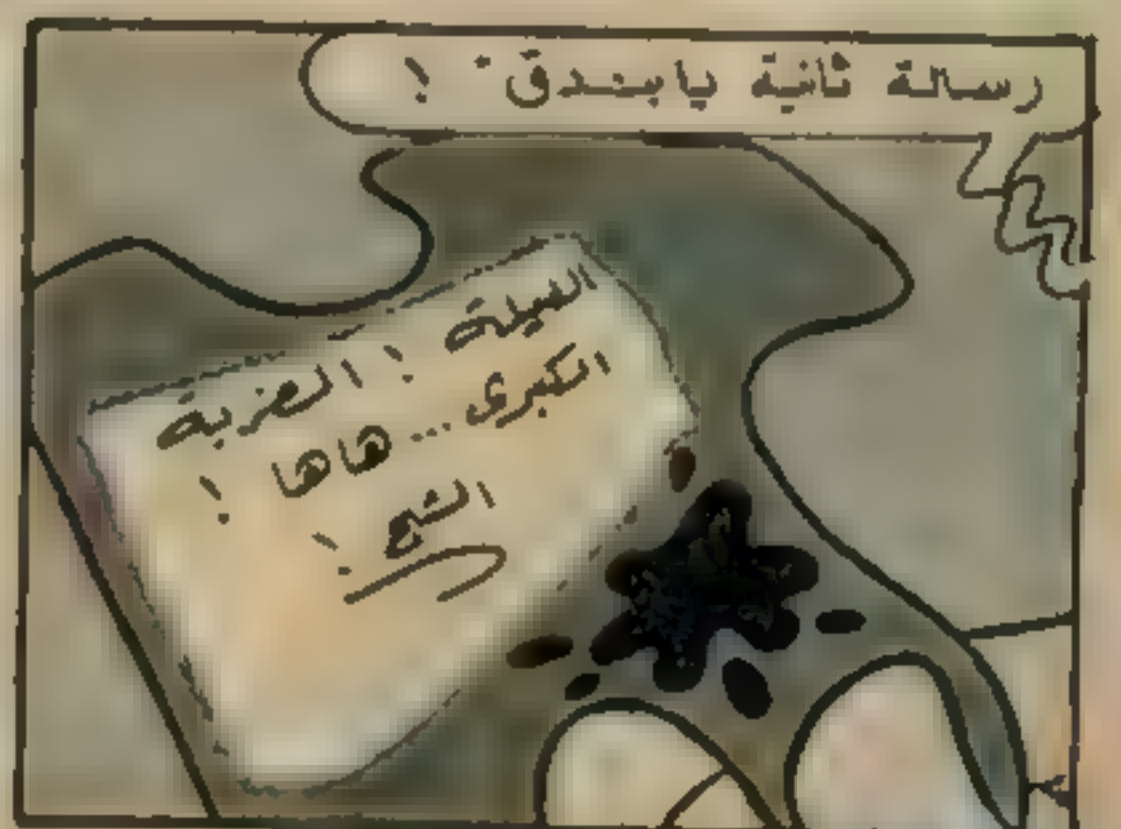 رسالة ثانية يابندق !
الليلة ! الضربة
الكبرى... هاها !
الشبح !